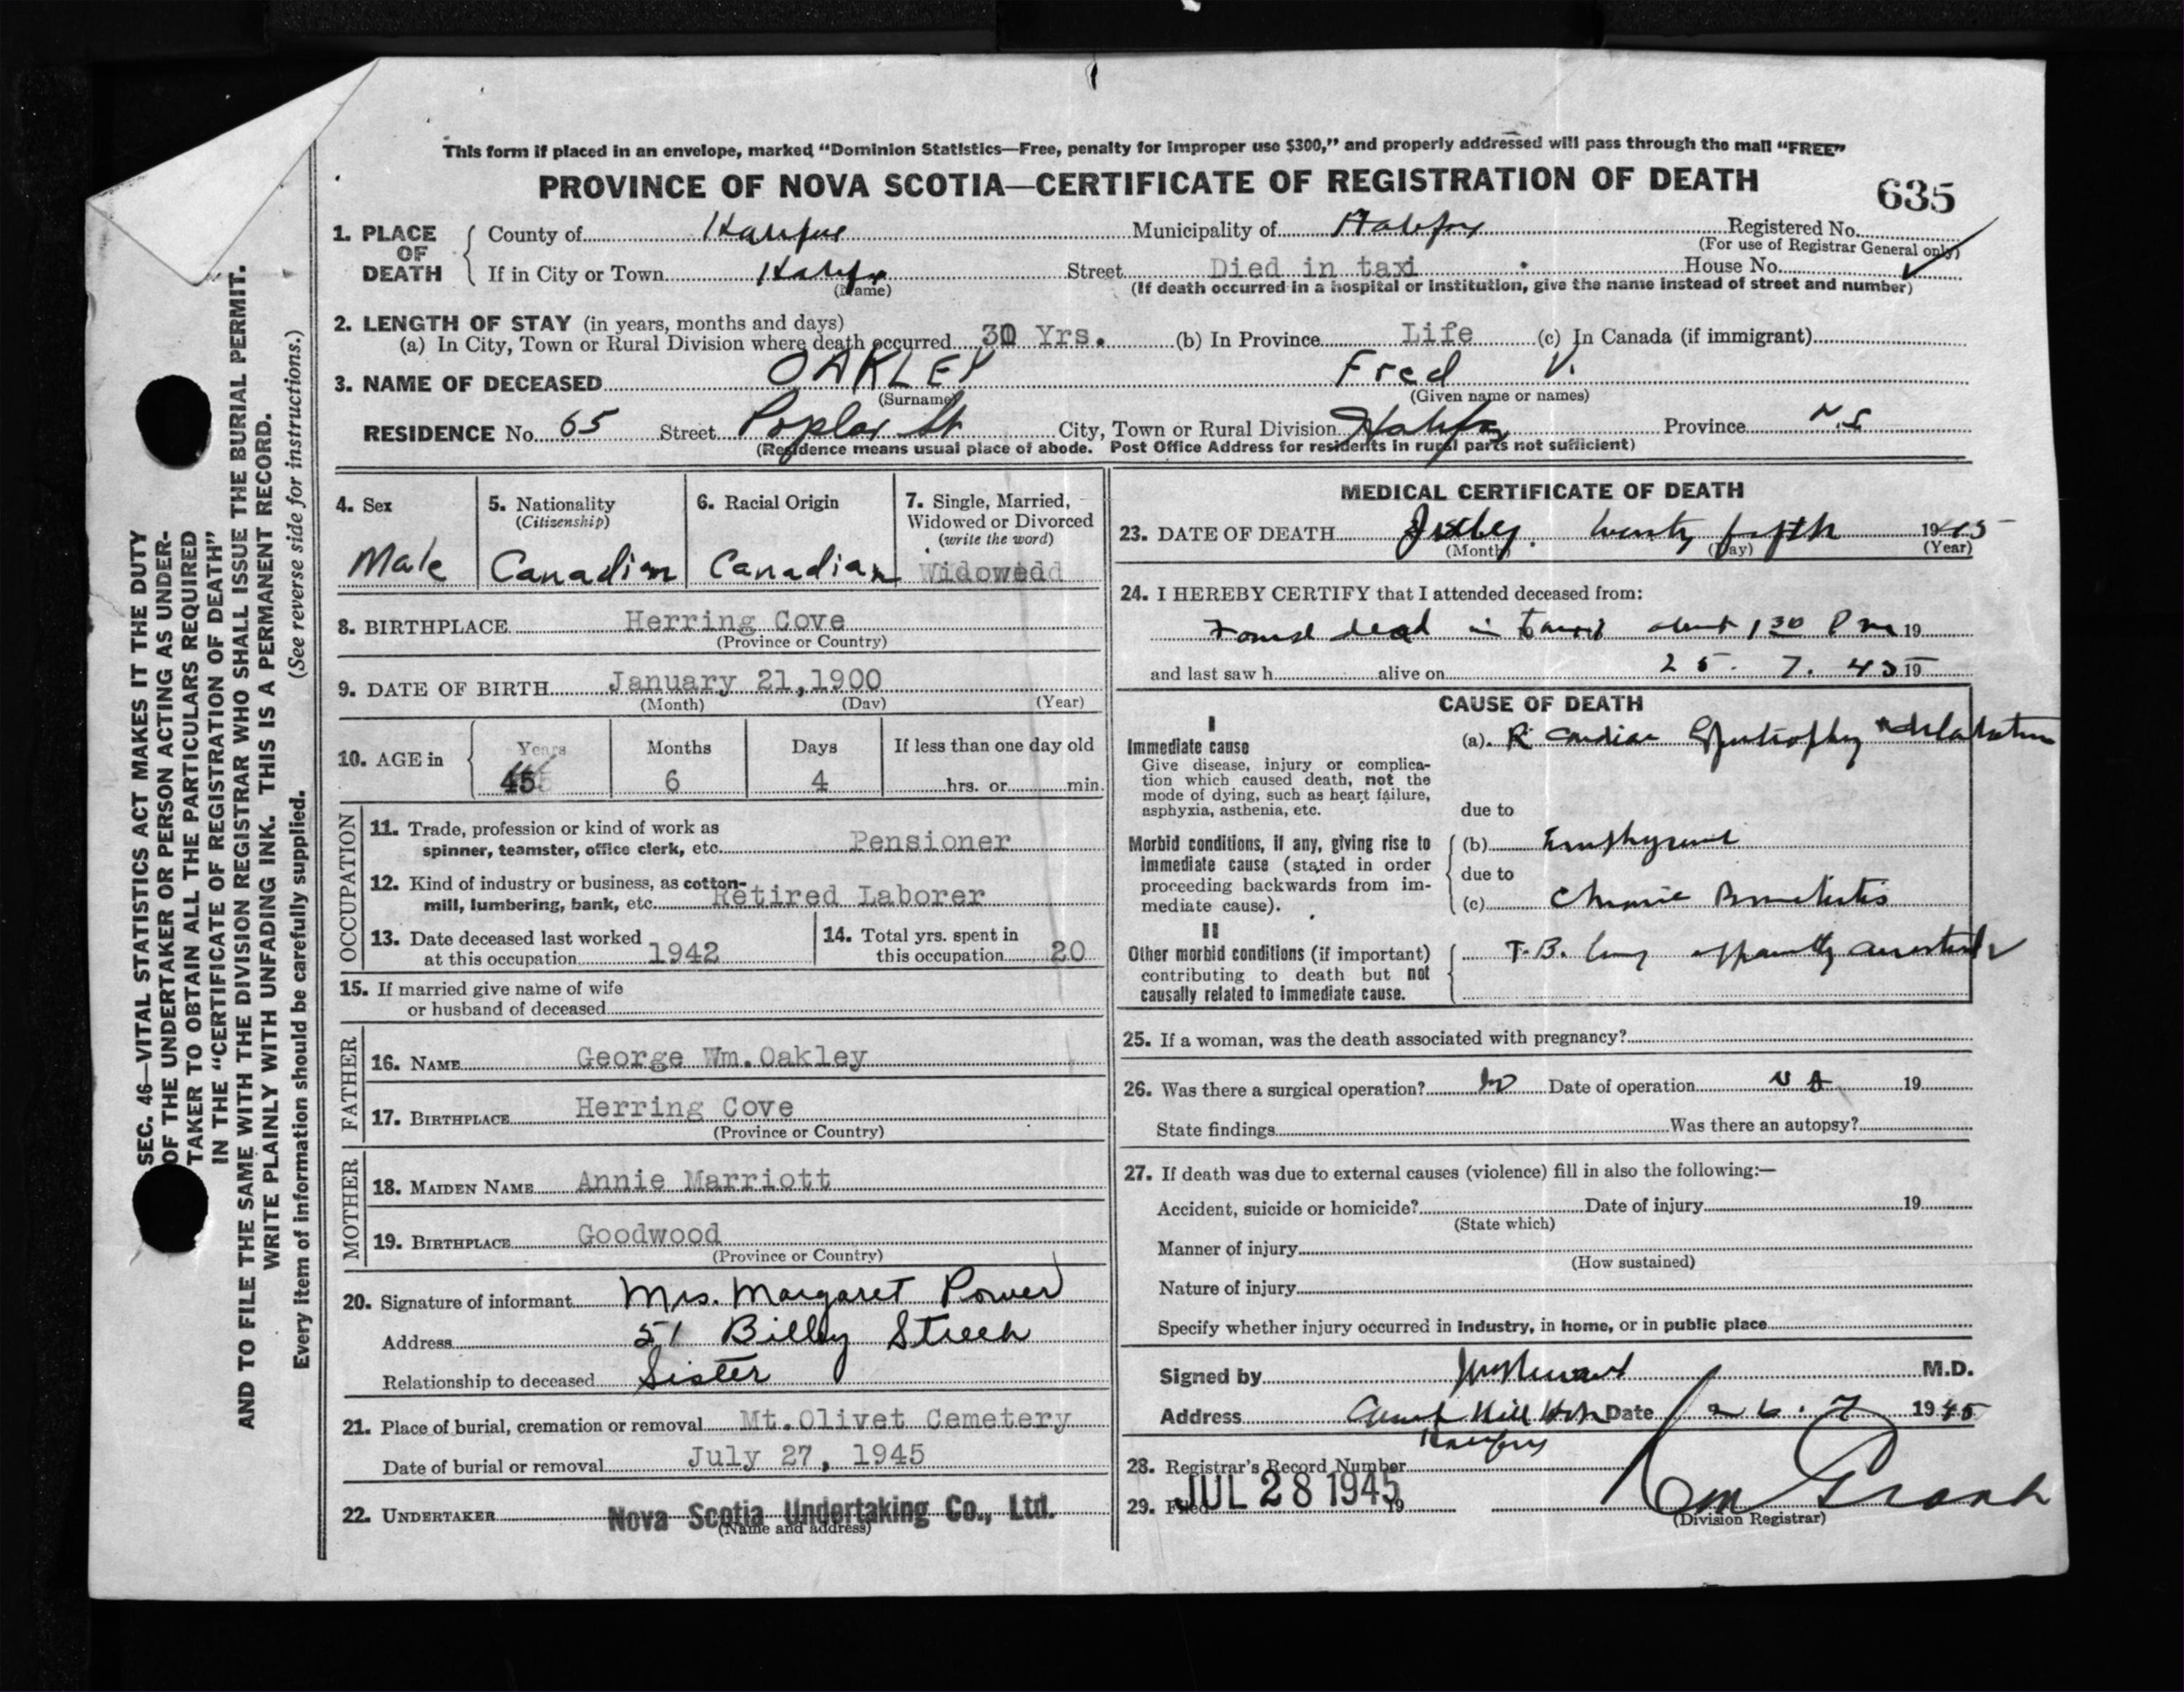 This form if placed in an envelope, marked "Dominion Statistics—Free, penalty for improper use $300," and properly addressed will pass through the mail "FREE"
PROVINCE OF NOVA SCOTIA—CERTIFICATE OF REGISTRATION OF DEATH
635
1. PLACE OF DEATH
County of Halifax Municipality of Halifax Registered No.
(For use of Registrar General only)
If in City or Town Halifax Street Died in taxi House No.
(Name) (If death occurred in a hospital or institution, give the name instead of street and number)
2. LENGTH OF STAY (in years, months and days)
(a) In City, Town or Rural Division where death occurred 30 Yrs. (b) In Province Life (c) In Canada (if immigrant)
3. NAME OF DECEASED OAKLEY Fred V.
(Surname) (Given name or names)
RESIDENCE No. 65 Street Poplar St City, Town or Rural Division Halifax Province N.S
(Residence means usual place of abode. Post Office Address for residents in rural parts not sufficient)
4. Sex
Male
5. Nationality
(Citizenship)
Canadian
6. Racial Origin
Canadian
7. Single, Married,
Widowed or Divorced
(write the word)
Widowed
8. BIRTHPLACE Herring Cove
(Province or Country)
9. DATE OF BIRTH January 21, 1900
(Month) (Day) (Year)
10. AGE in
Years Months Days If less than one day old
45 6 4 hrs. or min.
OCCUPATION
11. Trade, profession or kind of work as
spinner, teamster, office clerk, etc. Pensioner
12. Kind of industry or business, as cotton-
mill, lumbering, bank, etc. Retired Laborer
13. Date deceased last worked
at this occupation 1942
14. Total yrs. spent in
this occupation 20
15. If married give name of wife
or husband of deceased
FATHER
16. NAME George Wm. Oakley
17. BIRTHPLACE Herring Cove
(Province or Country)
MOTHER
18. MAIDEN NAME Annie Marriott
19. BIRTHPLACE Goodwood
(Province or Country)
20. Signature of informant Mrs. Margaret Power
Address 51 Bilby Street
Relationship to deceased Sister
21. Place of burial, cremation or removal Mt. Olivet Cemetery
Date of burial or removal July 27, 1945
22. UNDERTAKER Nova Scotia Undertaking Co., Ltd.
(Name and address)
MEDICAL CERTIFICATE OF DEATH
23. DATE OF DEATH July twenty fifth 1945
(Month) (Day) (Year)
24. I HEREBY CERTIFY that I attended deceased from:
Found dead in about 1 30 Pm 19
and last saw h alive on 25. 7. 45 19
CAUSE OF DEATH
I
Immediate cause
Give disease, injury or complica-
tion which caused death, not the
mode of dying, such as heart failure,
asphyxia, asthenia, etc.
(a) R cardiac hypertrophy & dilatation
due to
Morbid conditions, if any, giving rise to
immediate cause (stated in order
proceeding backwards from im-
mediate cause).
(b) Emphysema
due to
(c) Chronic Bronchitis
II
Other morbid conditions (if important)
contributing to death but not
causally related to immediate cause.
T.B. lung apparently arrested
25. If a woman, was the death associated with pregnancy?
26. Was there a surgical operation? no Date of operation 19
State findings Was there an autopsy?
27. If death was due to external causes (violence) fill in also the following:—
Accident, suicide or homicide? Date of injury 19
(State which)
Manner of injury
(How sustained)
Nature of injury
Specify whether injury occurred in industry, in home, or in public place
Signed by M.D.
Address Camp Hill Hosp Date 26. 7 1945
Halifax
28. Registrar's Record Number
29. Filed JUL 28 1945 19
(Division Registrar)
SEC. 46—VITAL STATISTICS ACT MAKES IT THE DUTY
OF THE UNDERTAKER OR PERSON ACTING AS UNDER-
TAKER TO OBTAIN ALL THE PARTICULARS REQUIRED
IN THE "CERTIFICATE OF REGISTRATION OF DEATH"
AND TO FILE THE SAME WITH THE DIVISION REGISTRAR WHO SHALL ISSUE THE BURIAL PERMIT.
WRITE PLAINLY WITH UNFADING INK. THIS IS A PERMANENT RECORD.
Every item of information should be carefully supplied. (See reverse side for instructions.)